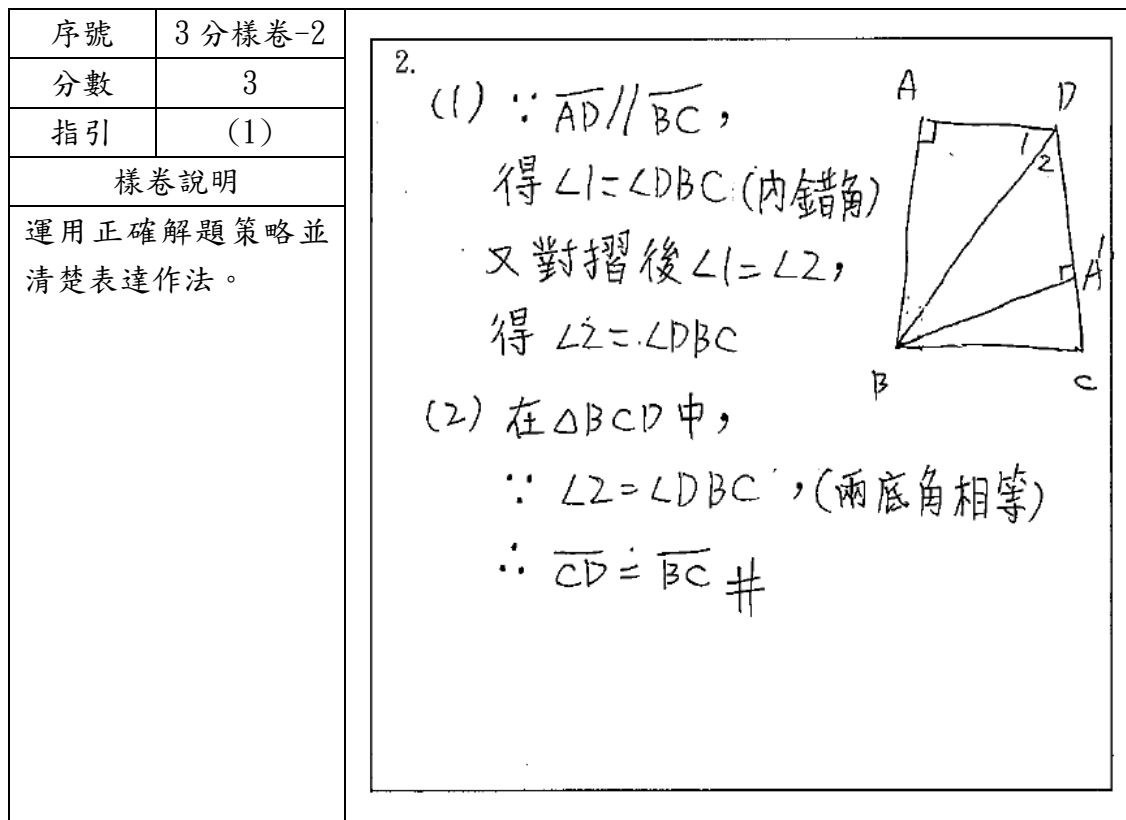 序號 3分樣卷-2
分數 3
指引 (1)
樣卷說明
運用正確解題策略並
清楚表達作法。
2.
(1) ∵ \overline{AD}//\overline{BC},
得∠1=∠DBC(內錯角)
又對摺後∠1=∠2,
得∠2=∠DBC
(2) 在△BCD中,
∵ ∠2=∠DBC,(兩底角相等)
∴ \overline{CD}=\overline{BC} #
A D
1
2
A'
B C